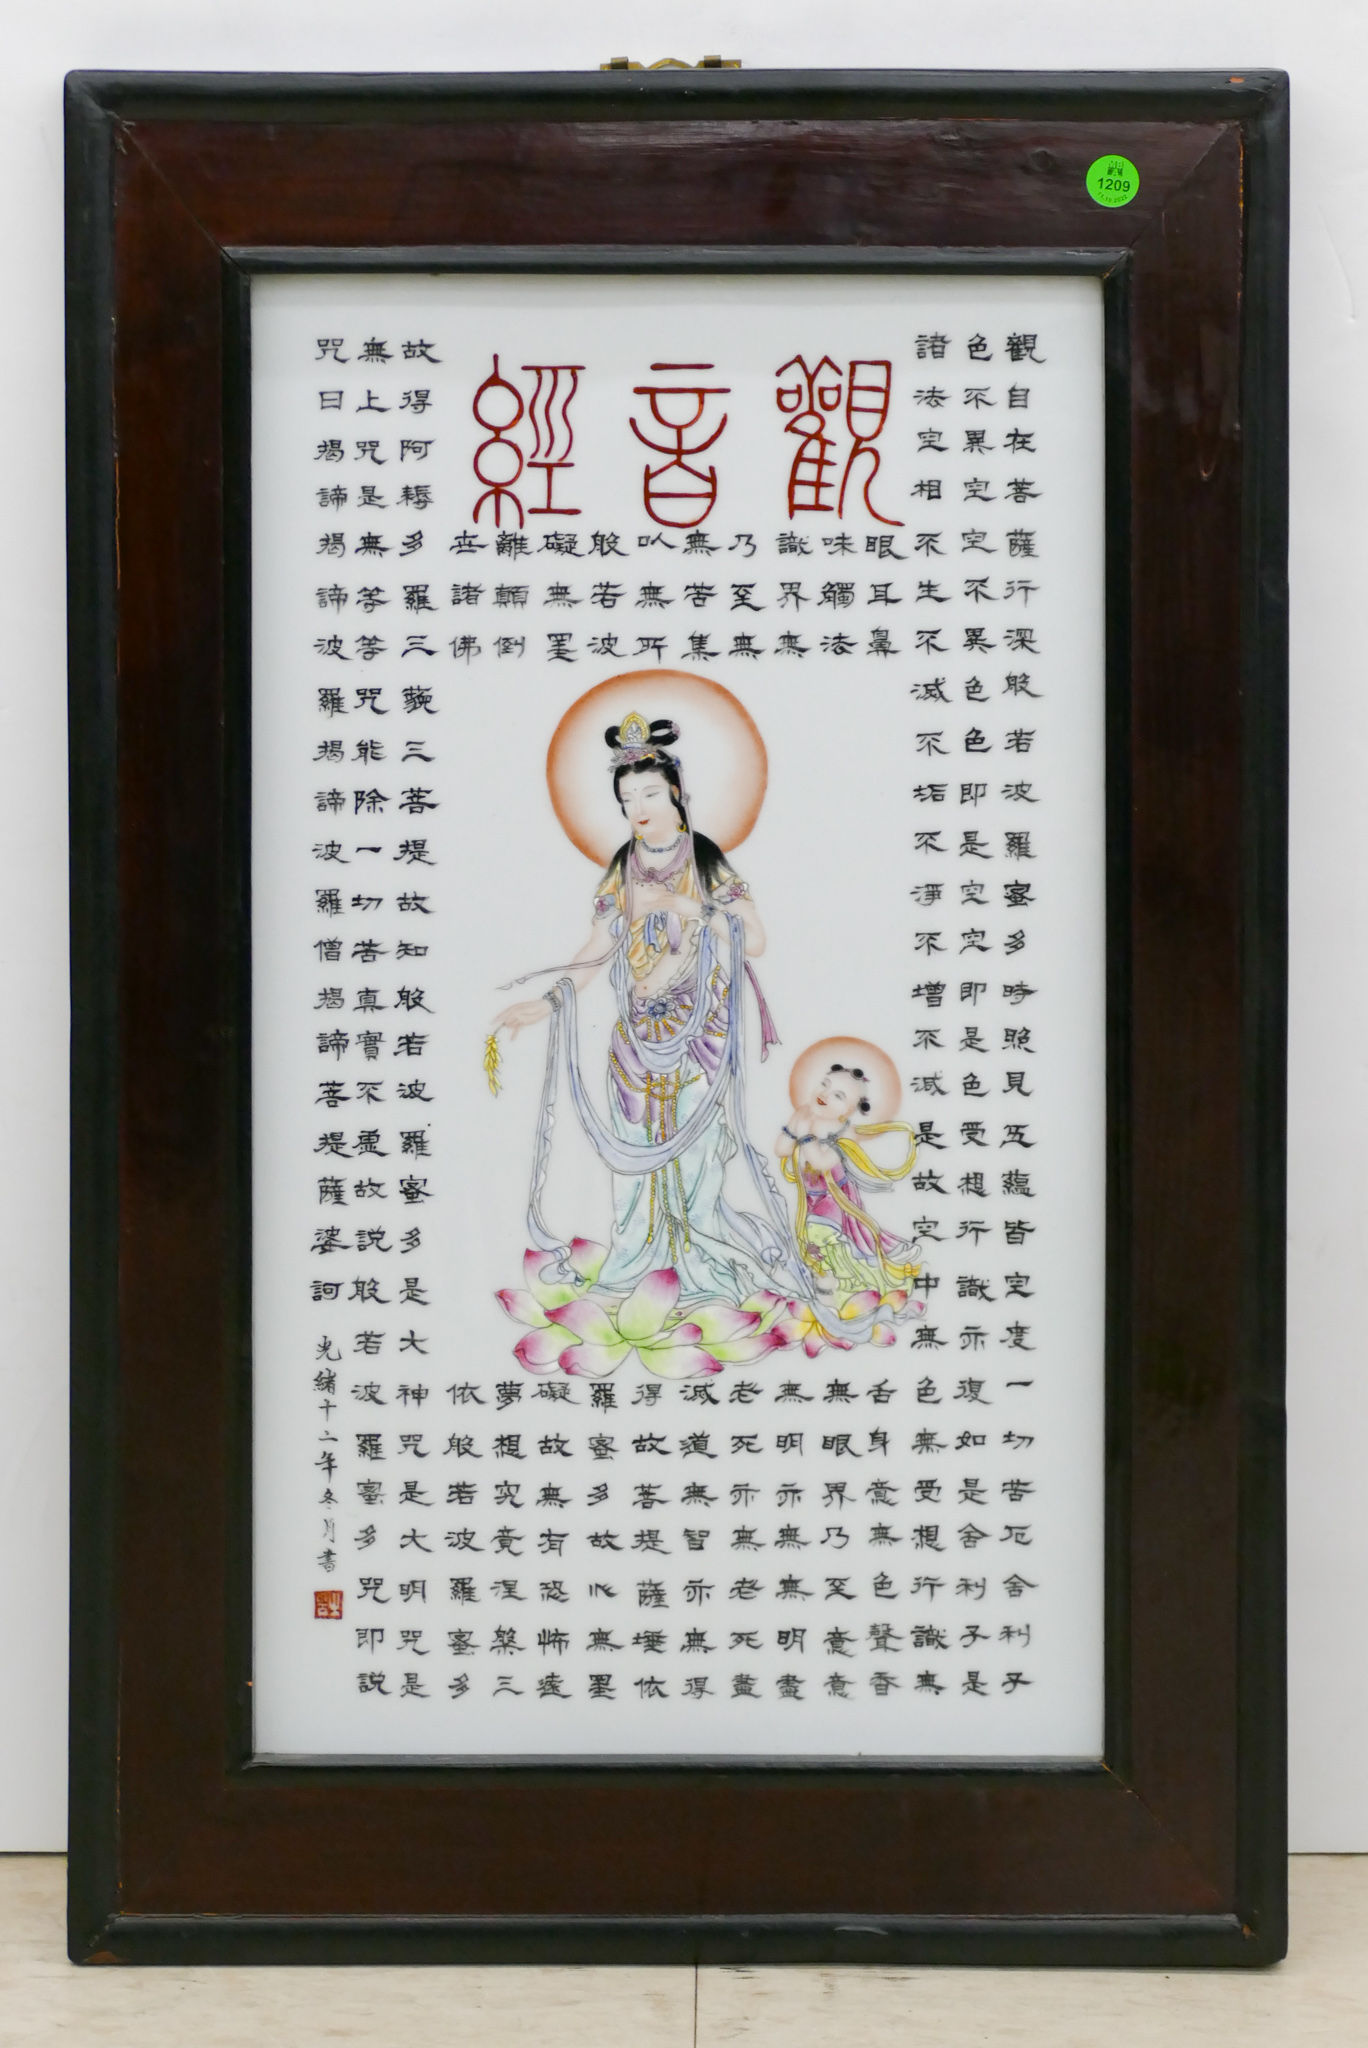 觀音經
觀自在菩薩行深般若波羅蜜多時照見五蘊皆空度一切苦厄舍利子
色不異空空不異色色即是空空即是色受想行識亦復如是舍利子是
諸法空相不生不滅不垢不淨不增不減是故空中無色無受想行識無
眼耳鼻舌身意無色聲香
味觸法無眼界乃至意意
識界無無明亦無無明盡
乃至無老死亦無老死盡
無苦集滅道無智亦無得
以無所得故菩提薩埵依
般若波羅蜜多故心無罣
礙無罣礙故無有恐怖遠
離顛倒夢想究竟涅槃三
世諸佛依般若波羅蜜多
故得阿耨多羅三藐三菩提故知般若波羅蜜多是大神咒是大明咒是
無上咒是無等等咒能除一切苦真實不虛故説般若波羅蜜多咒即説
咒曰揭諦揭諦波羅揭諦波羅僧揭諦菩提薩婆訶
光緒十二年冬月書
1209